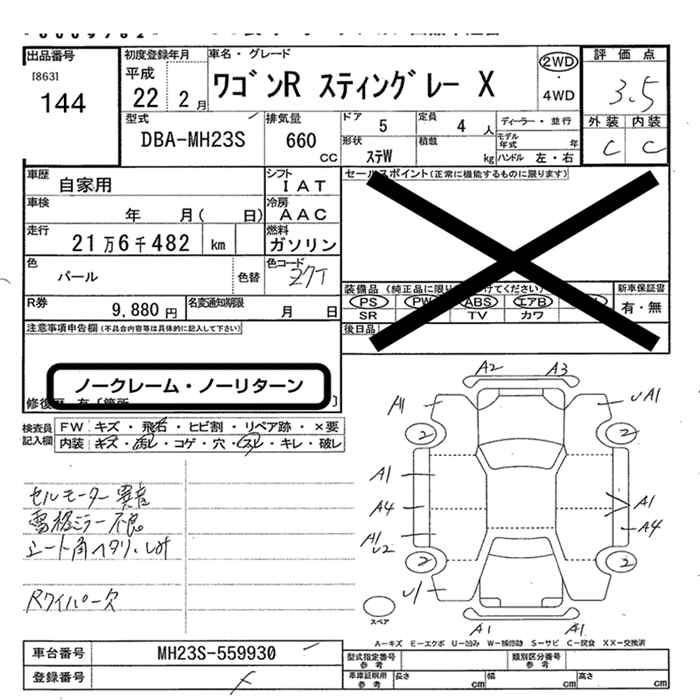 出品番号
[863]
144
初度登録年月
平成
22 2月
車名・グレード
ワゴンR スティングレー X
2WD
・
4WD
評価点
3.5
外装 内装
C C
型式
DBA-MH23S
排気量
660
CC
ドア 5
定員 4 人
形状 ステW
積載 kg
ディーラー・並行
モデル年式 年
ハンドル 左・右
車歴 自家用
シフト IAT
車検 年 月( 日)
冷房 AAC
走行 21万6千482 km
燃料 ガソリン
色 パール 色替
色コード Z7T
R券 9,880円
名変通知期限 月 日
セールスポイント(正常に機能するものに限ります)
装備品
新車保証書
PS PW ABS エアB
有・無
SR TV カワ
後日品
注意事項申告欄(不具合内容等は具体的に記入して下さい)
ノークレーム・ノーリターン
検査員記入欄
FW キズ・飛石・ヒビ割・リペア跡・×要
内装 キズ・汚レ・コゲ・穴・スレ・キレ・破レ
セルモーター異音
電格ミラー不良
シート角ヘタリ・シミ
Rワイパー欠
A2 A3
A1 UA1
2 2
A1
A4 A1
A1 A4
U2
2 2
U1
A1 A1
スペア
A−キズ E−エクボ U−凹み W−補修跡 S−サビ C−腐食 XX−交換済
車台番号 MH23S-559930
登録番号
型式指定番号 参考
類別区分番号 参考
車庫証明用 参考
長さ cm 幅 cm 高さ cm